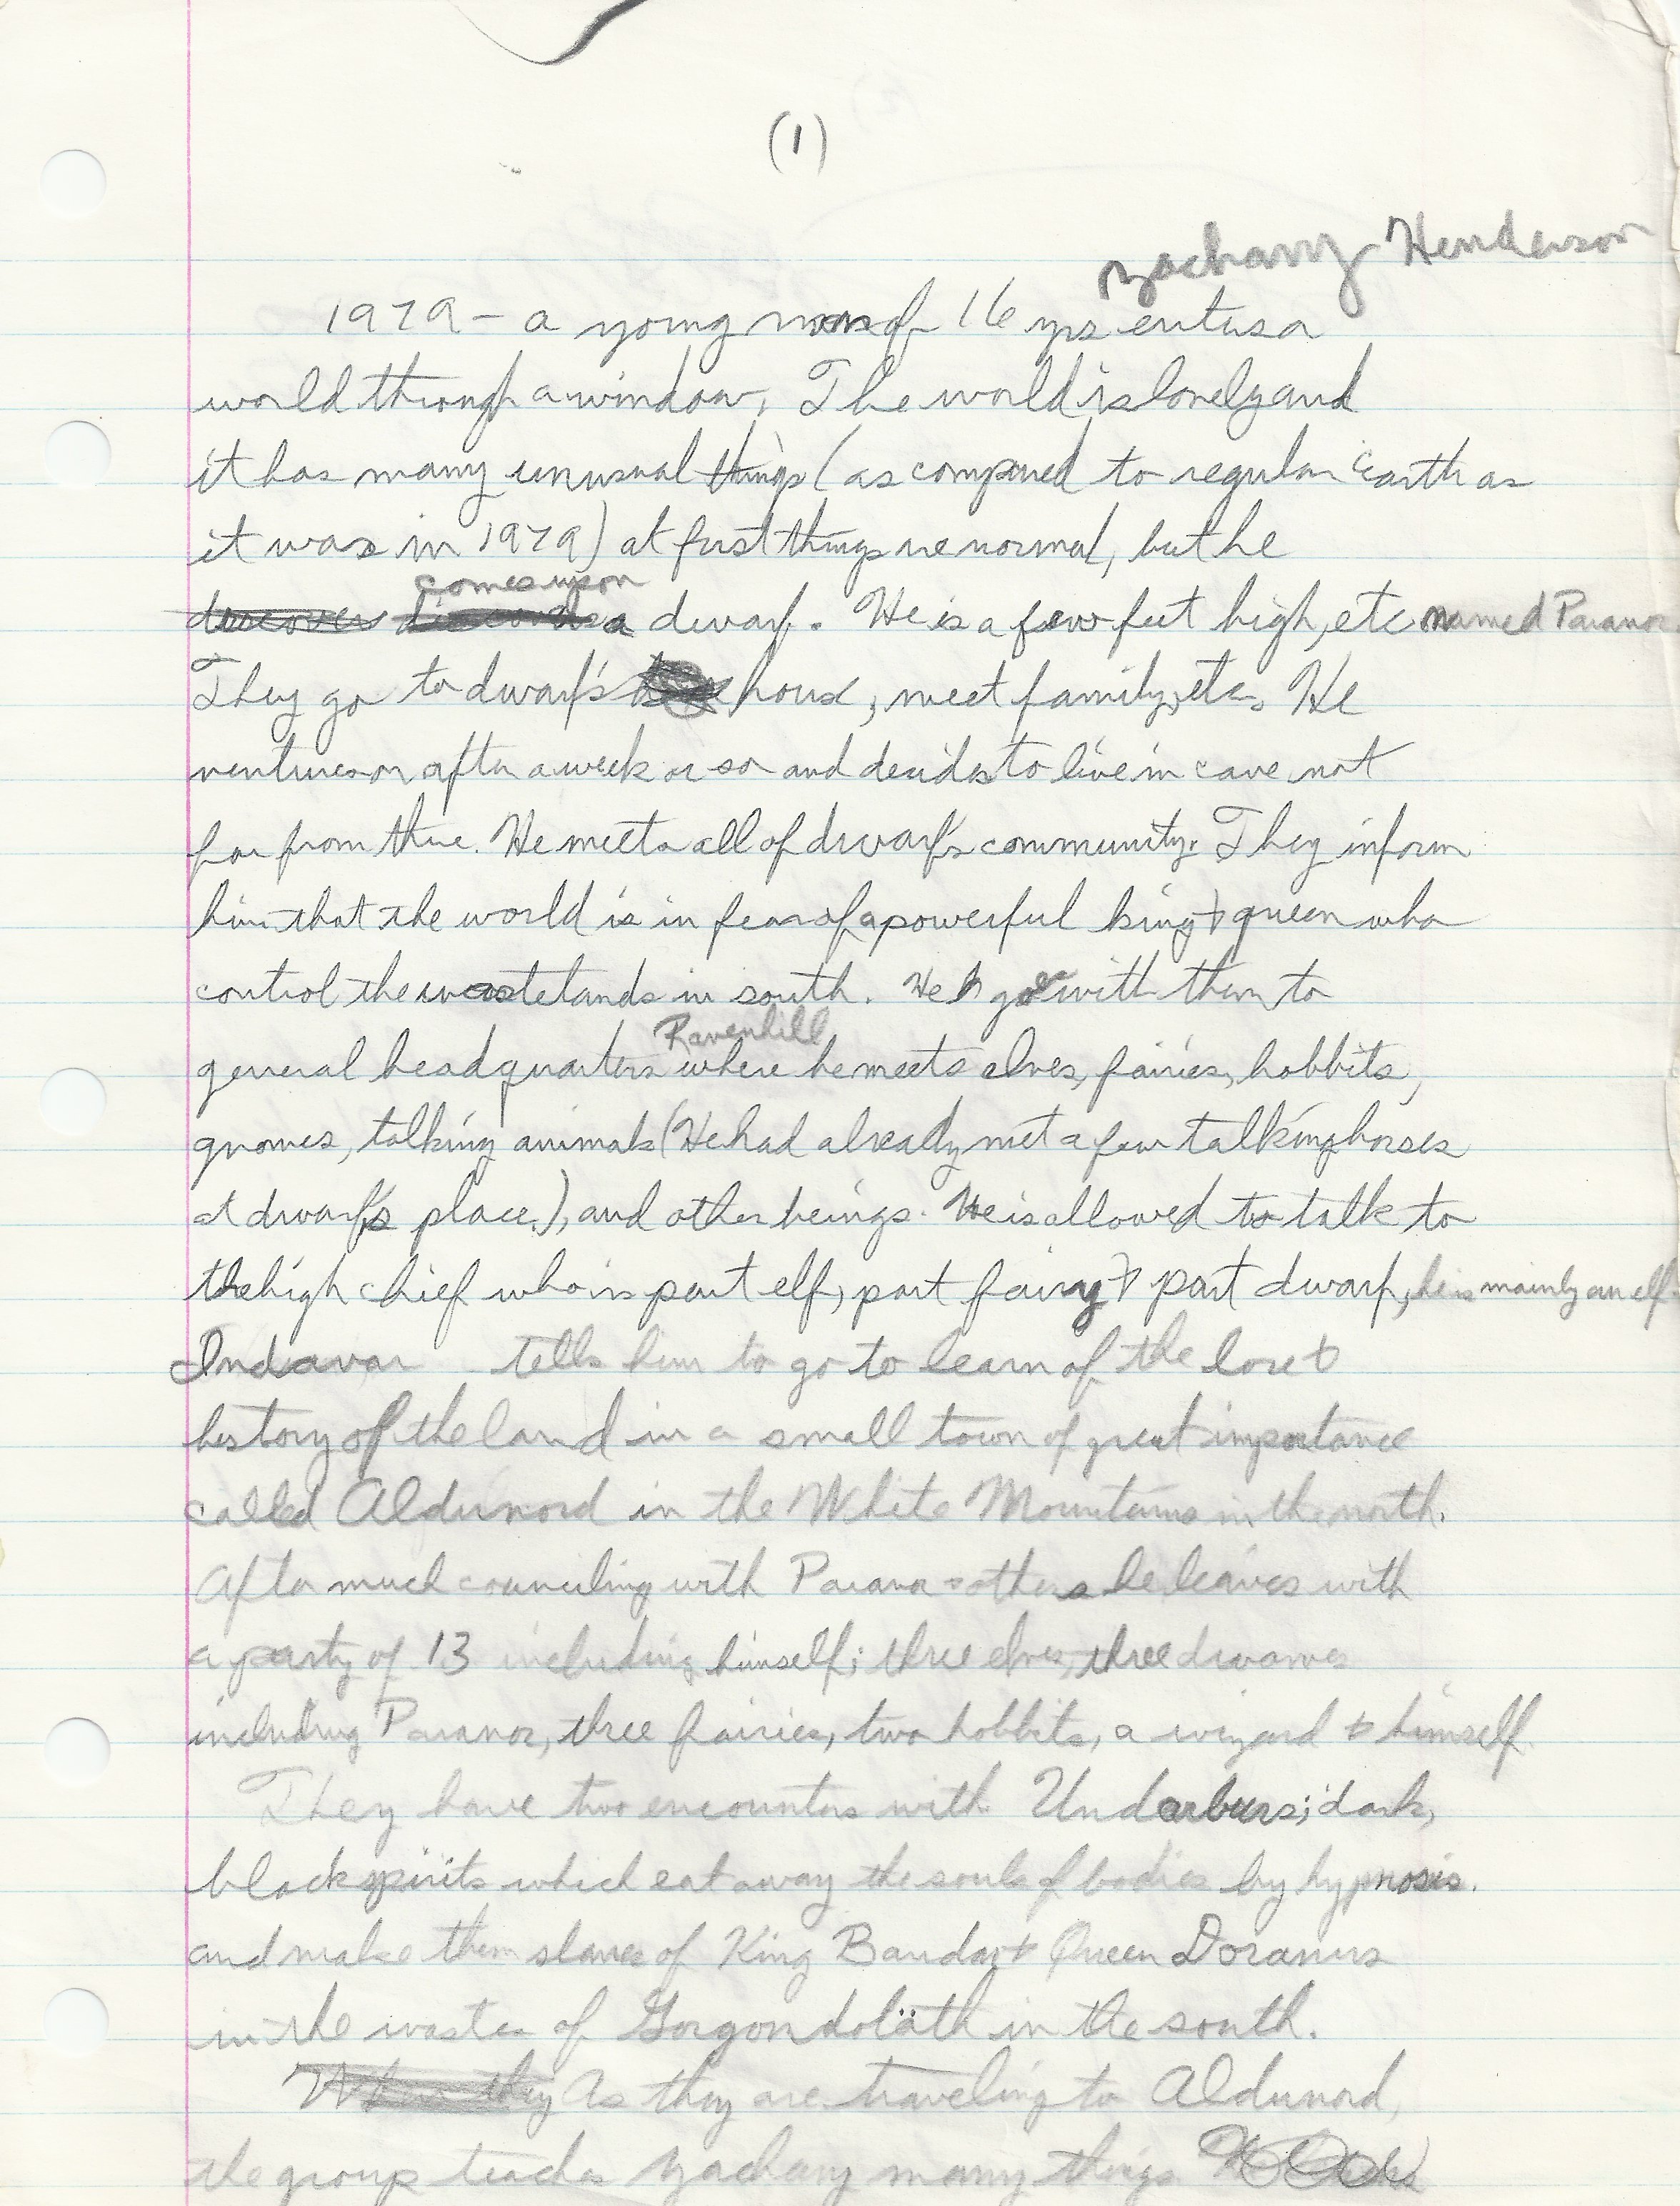 (1)
Zachary Henderson
1979 - a young man of 16 yrs enters a
world through a window. The world is lovely and
it has many unusual things (as compared to regular Earth as
it was in 1979) at first things are normal, but he
comes upon
discovers discovers a dwarf. He is a few feet high, etc named Paranor.
They go to dwarf's house, meet family, etc. He
ventures on after a week or so and decides to live in cave not
far from there. He meets all of dwarf's community. They inform
him that the world is in fear of a powerful king & queen who
control the wastelands in south. He goes with them to
Ravenhill
general headquarters where he meets elves, fairies, hobbits,
gnomes, talking animals (He had already met a few talking horses
at dwarf's place.), and other beings. He is allowed to talk to
the high chief who is part elf, part fairy & part dwarf, he is mainly an elf.
Indavar tells him to go to learn of the lore &
history of the land in a small town of great importance
called Aldunord in the White Mountains in the north.
After much counciling with Paranor & others he leaves with
a party of 13 including himself; three elves, three dwarves
including Paranor, three fairies, two hobbits, a wizard & himself.
They have two encounters with Undarburs; dark,
black spirits which eat away the souls of bodies by hypnosis.
and make them slaves of King Bandar & Queen Doranus
in the wastes of Gorgondoläth in the south.
When they As they are traveling to Aldunord,
the group teaches Zachary many things